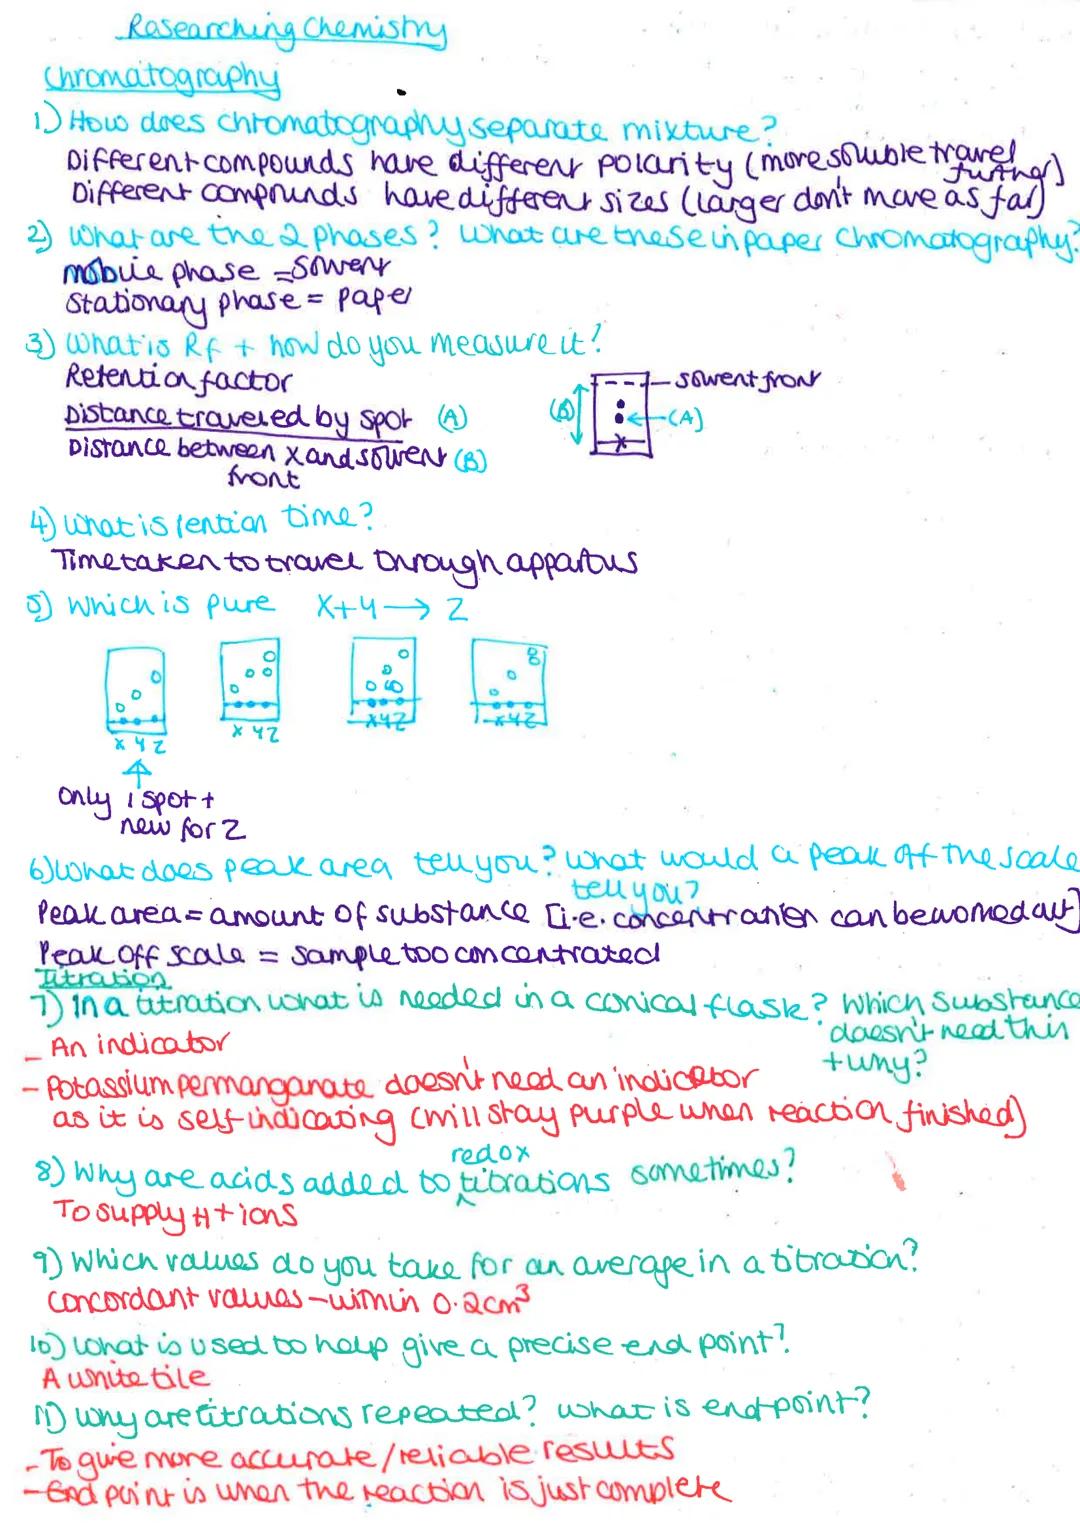 Researching Chemistry
Chromatography
1) How does chromatography separate mixture?
Different compounds have different polarity (more soluble travel further)
Different compounds have different sizes (larger don't move as far)
2) What are the 2 phases? What are these in paper chromatography?
mobile phase = solvent
Stationary phase = paper
3) What is Rf + how do you measure it?
Retention factor
Distance travelled by spot (A)
Distance between x and solvent front (B)
solvent front
(B)
(A)
x
4) What is rention time?
Time taken to travel through appartus
5) Which is pure X+Y → Z
X Y Z
X Y Z
X Y Z
X Y Z
only 1 spot +
new for Z
6) What does peak area tell you? What would a peak off the scale
tell you?
Peak area = amount of substance [i.e. concentration can be worked out]
Peak off scale = sample too concentrated
Titration
7) In a titration what is needed in a conical flask? Which substance
doesn't need this
+ why?
- An indicator
- Potassium permanganate doesn't need an indicator
as it is self-indicating (will stay purple when reaction finished)
8) Why are acids added to redox titrations sometimes?
To supply H+ ions
9) Which values do you take for an average in a titration?
Concordant values - within 0.2cm³
10) What is used to help give a precise end point?
A white tile
11) Why are titrations repeated? What is end point?
- To give more accurate / reliable results
- End point is when the reaction is just complete